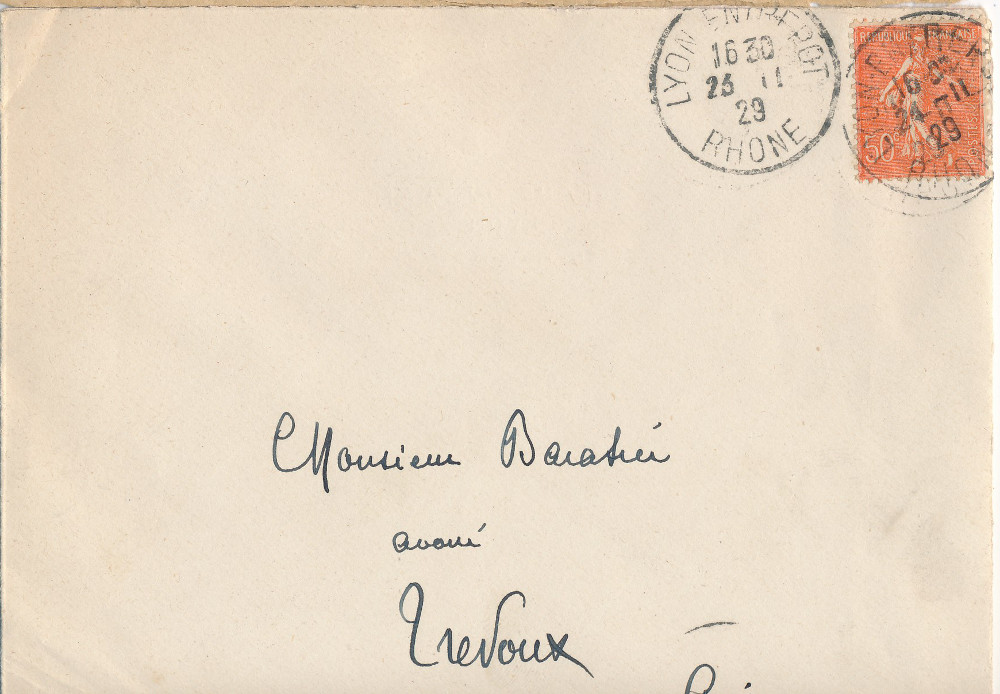 LYON ENTREPOT
16 30
23 11
29
RHONE
REPUBLIQUE FRANÇAISE
50c
POSTES
16
24 11
29
Monsieur Baratier
avoué
Trevoux